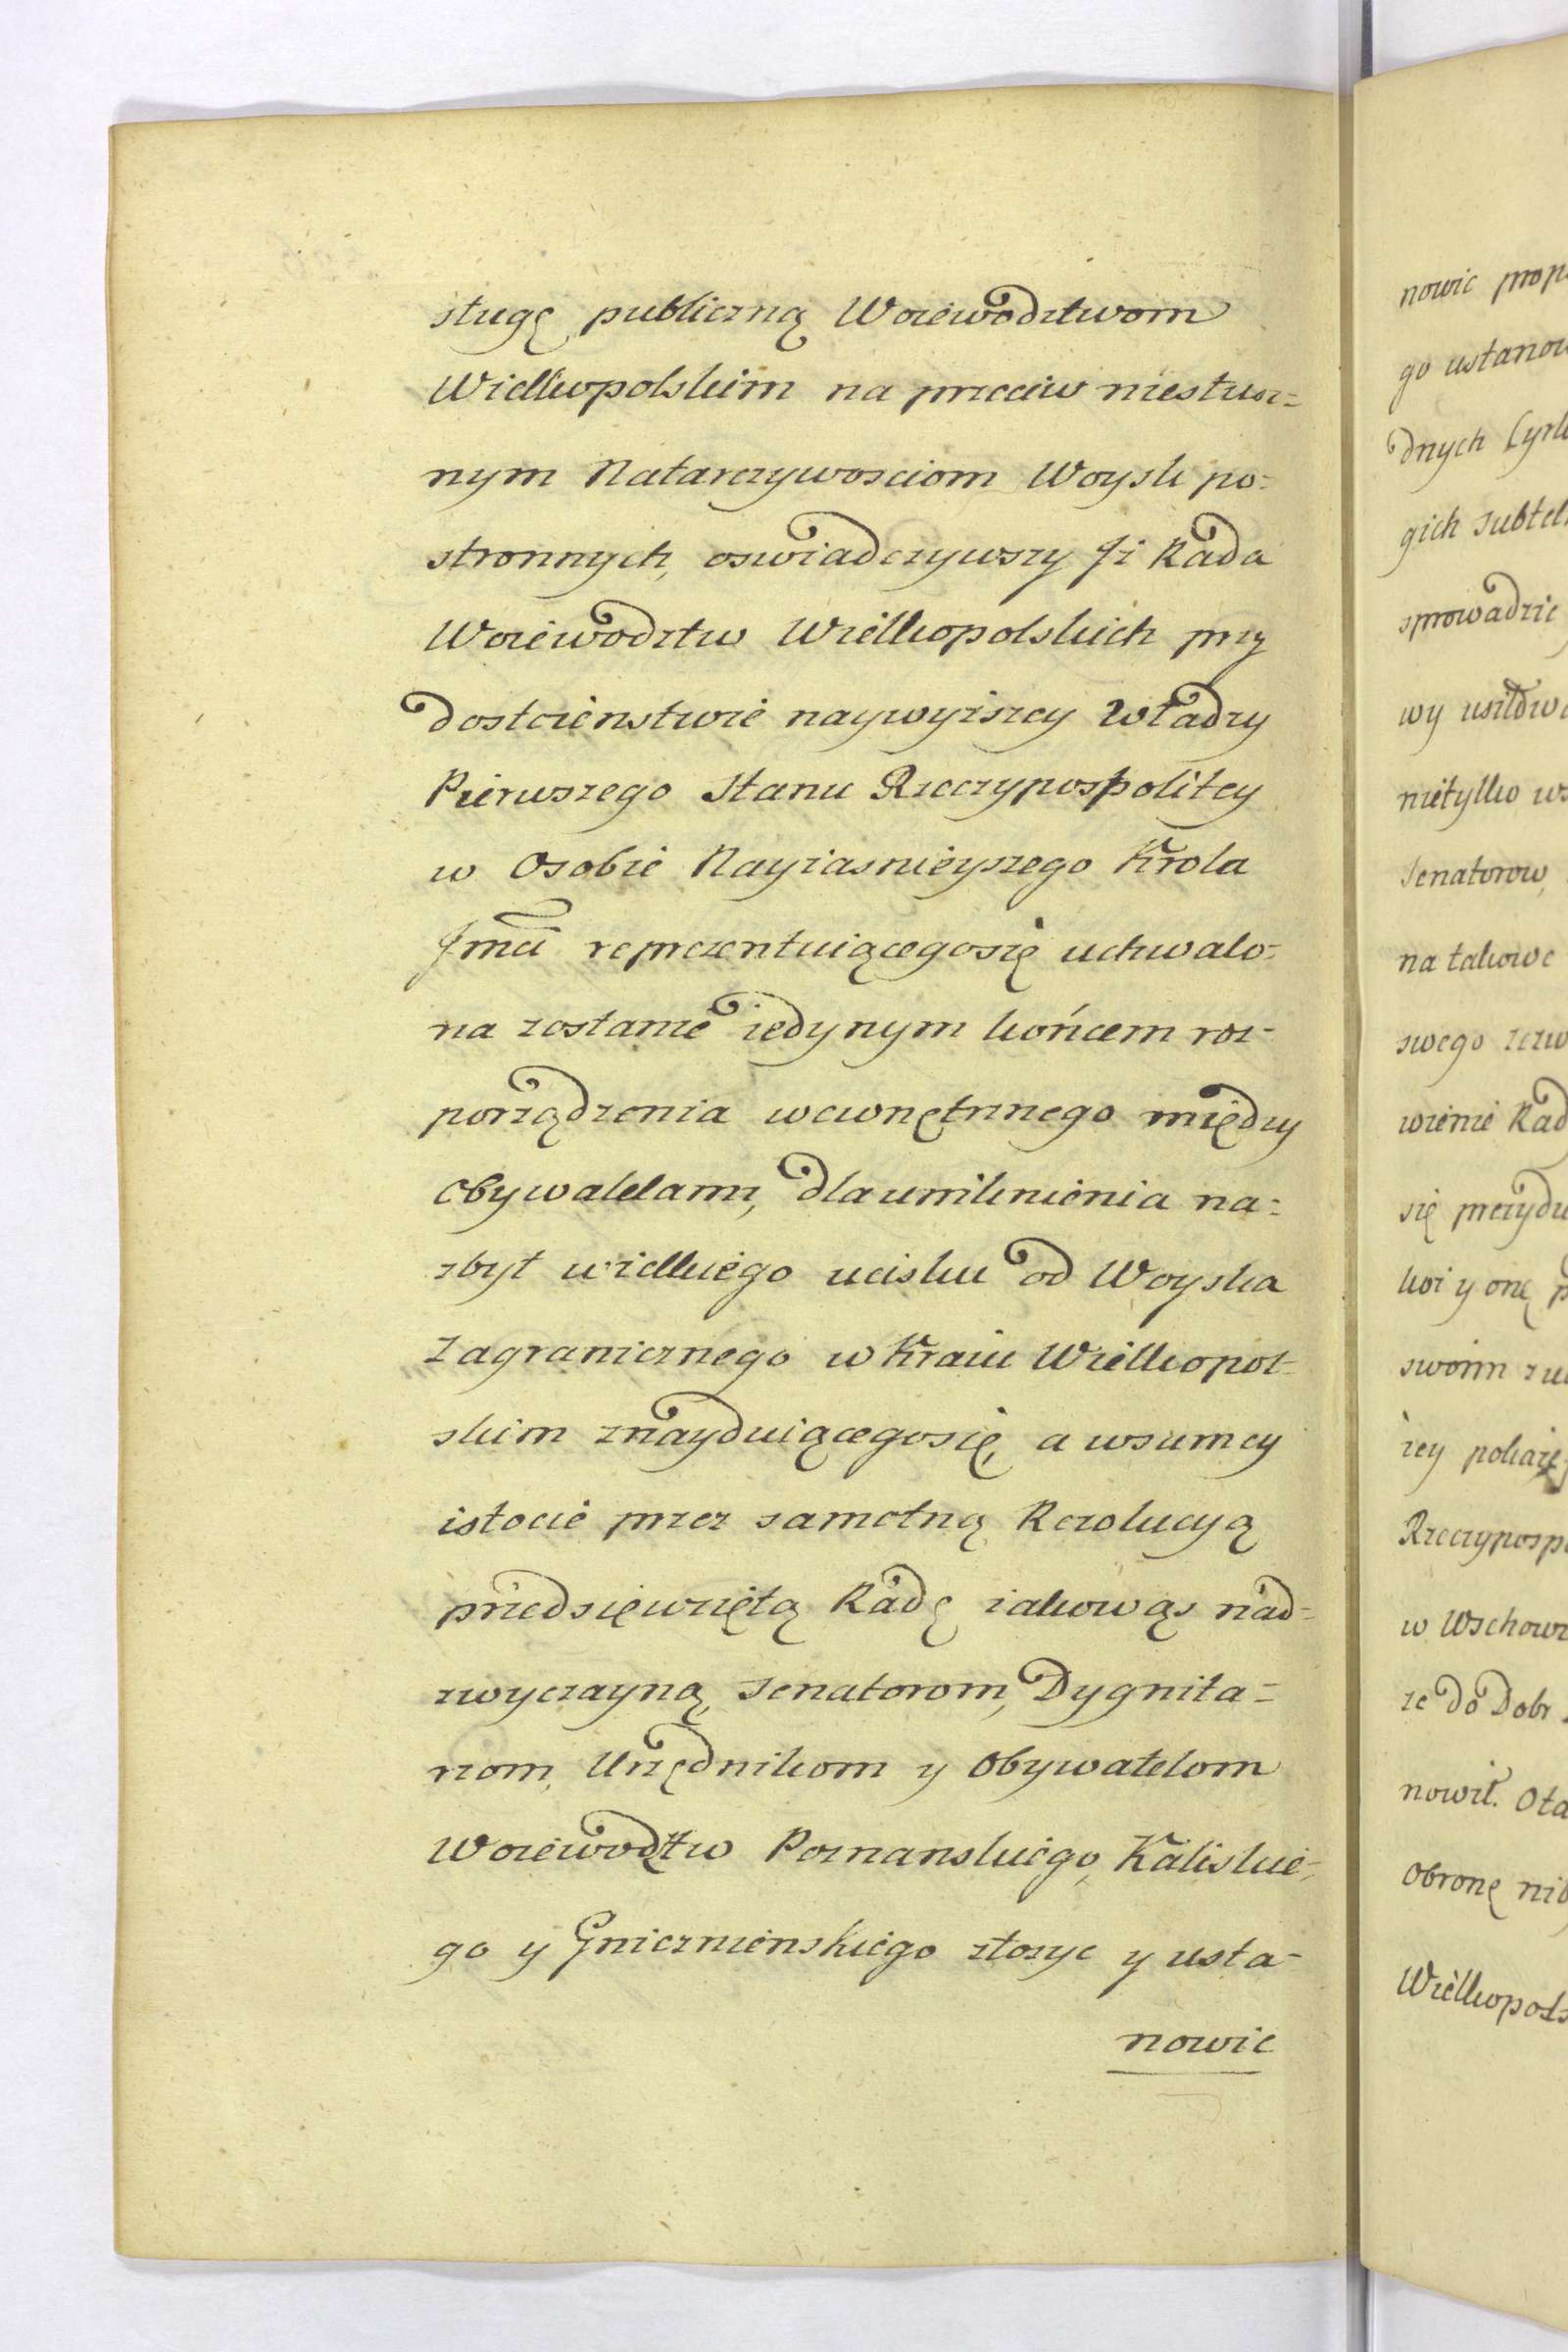 sługę publiczną Woiewodztwom
Wielkopolskim na przeciw niesłusz=
nym Natarczywosciom Woysk po=
stronnych, oswiadczywszy Jż Rada
Woiewodztw Wielkopolskich przy
dostoienstwie naywyższey Władzy
Pierwszego Stanu Rzeczypospolitey
w Osobie Nayiasnieyszego Krola
Jmci reprezentuiącegosię uchwalo=
na zostanie iedynym końcem roz-
porządzenia wewnętrznego między
Obywatelami, dla uniknienia na=
zbyt wielkiego ucisku od Woyska
Zagranicznego w Kraiu Wielkopol-
skim znayduiącegosię, a wsamey
istocie przez samotną Rezolucyą
przedsięwziętą Radę iakowąs nad=
zwyczayną, Senatorom, Dygnita=
rzom, Urzędnikom y Obywatelom
Woiewodztw Poznanskiego, Kaliskie=
go y Gnieznienskiego złozyc y usta-
nowic
nowic
go ustanow
dnych
gich subtel
sprowadzic
wy
nietylko ws
Senatorow,
na takowe
swego
wienie Rad
się
koi y onę p
swoim
iey
Rzeczyposp
w Wschow
ze do Dobr
nowił. Ota
Obronę
Wielkopols